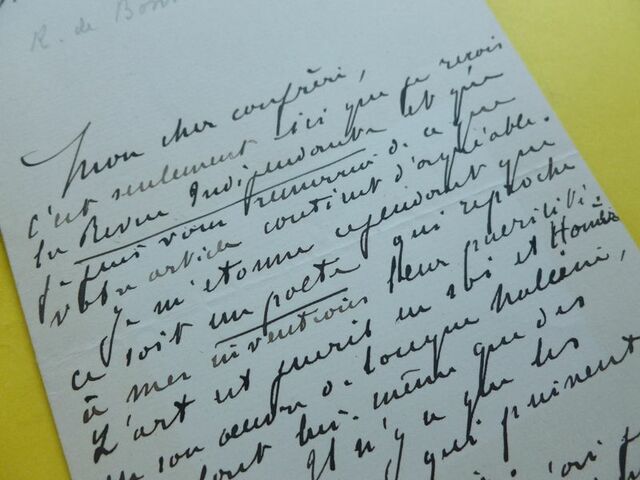 R. de Bonn
Mon cher confrère,
c'est seulement ici que je reçois
la Revue Indépendante et que
je puis vous remercier de ce que
votre article contient d'agréable.
Je m'étonne cependant que
ce soit un poète qui reproche
à mes inventions leur puérilité.
L'art est puéril en soi et Homère
son œuvre de longue haleine,
tout lui-même que des
Il n'y a que les
qui puissent